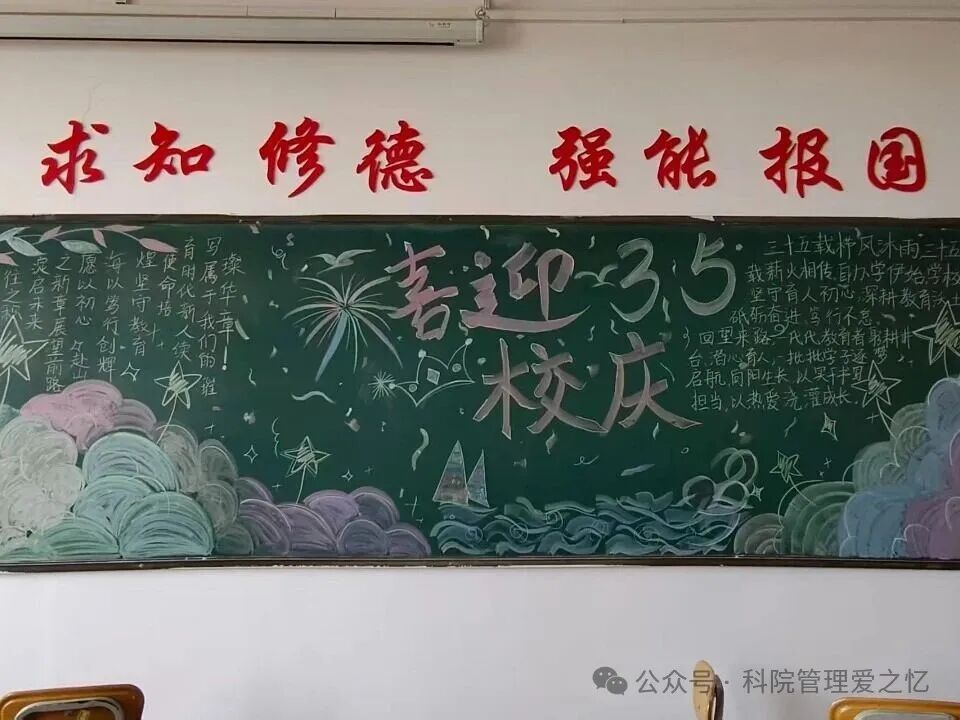 求知修德 强能报国
喜迎35
校庆
荧启未来
之新章展望前路
愿以初心 赴山
每以笃行创辉
煌坚守教育
使命培
育时代新人续
写属于我们的璀
璨华章!
三十五载栉风沐雨三十五
载薪火相传自 字伊始,学校
坚守育人初心,深耕教育沃土
砥砺奋进,笃行不怠
回望来路,一代代教育者 耕讲
台,泊心育人,一批批学子逐梦
启航,向阳生长,以实干书写
担当,以热爱浇灌成长。
公众号·科院管理爱之忆